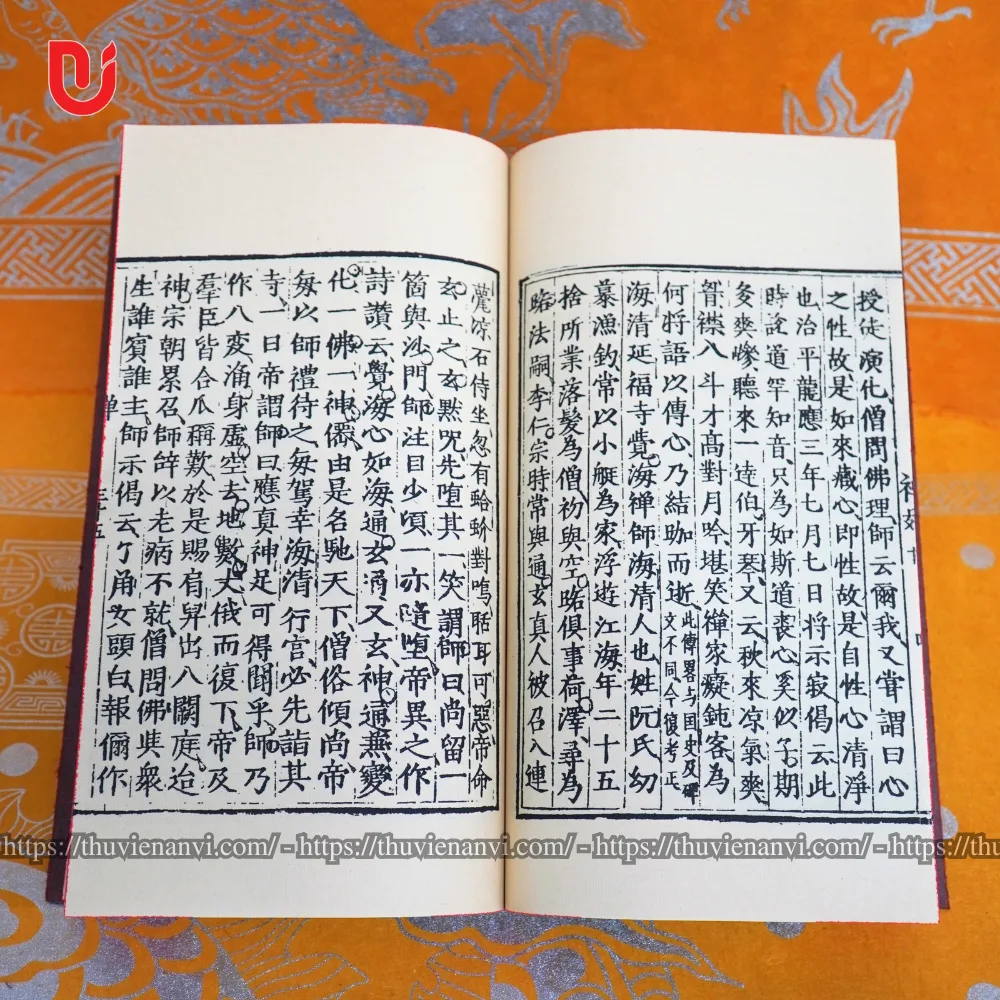 授徒演化僧問佛理師云爾我又嘗謂曰心
之性故是如來藏心即性故是自性心清淨
也治平龍應三年七月七日将示寂偈云此
時説道罕知音只為如斯道喪心奚似子期
多爽㜗聽來一達伯牙琴又云秋來凉氣爽
智襟八斗才高對月吟堪笑禅家癡鈍客為
何將語以傳心乃結助而逝此傳畧与國史及碑文不同今復考正
海清延福寺覺海禅師海清人也姓阮氏幼
慕漁釣常以小艇為家浮遊江海年二十五
捨所業落髮為僧初與空路俱事荷澤尋為
路法嗣李仁宗時常與通玄真人被召入連
蔑凉石侍坐忽有蛤蚧對鳴聒耳可惡帝命
玄止之玄默咒先堕其一笑謂師曰尚留一
箇與沙門師注目少頃一亦隨堕帝異之作
詩讚云覺海心如海通玄道又玄神通兼變
化一佛一神僊由是名馳天下僧俗傾尚帝
每以師禮待之每駕幸海清行宮必先詣其
寺一日帝謂師曰應真神足可得聞乎師乃
作八变涌身虚空去地數丈俄而復下帝及
羣臣皆合爪稱歎於是賜肩舁出入闕庭迨
神宗朝累召師辞以老病不就僧問佛與衆
生誰賓誰主師示偈云了甬女頭白報儞作
https://thuvienanvi.com/ - https://thuvienanvi.com/ - https://thuvienanvi.com/ - https://thuvienanvi.com/